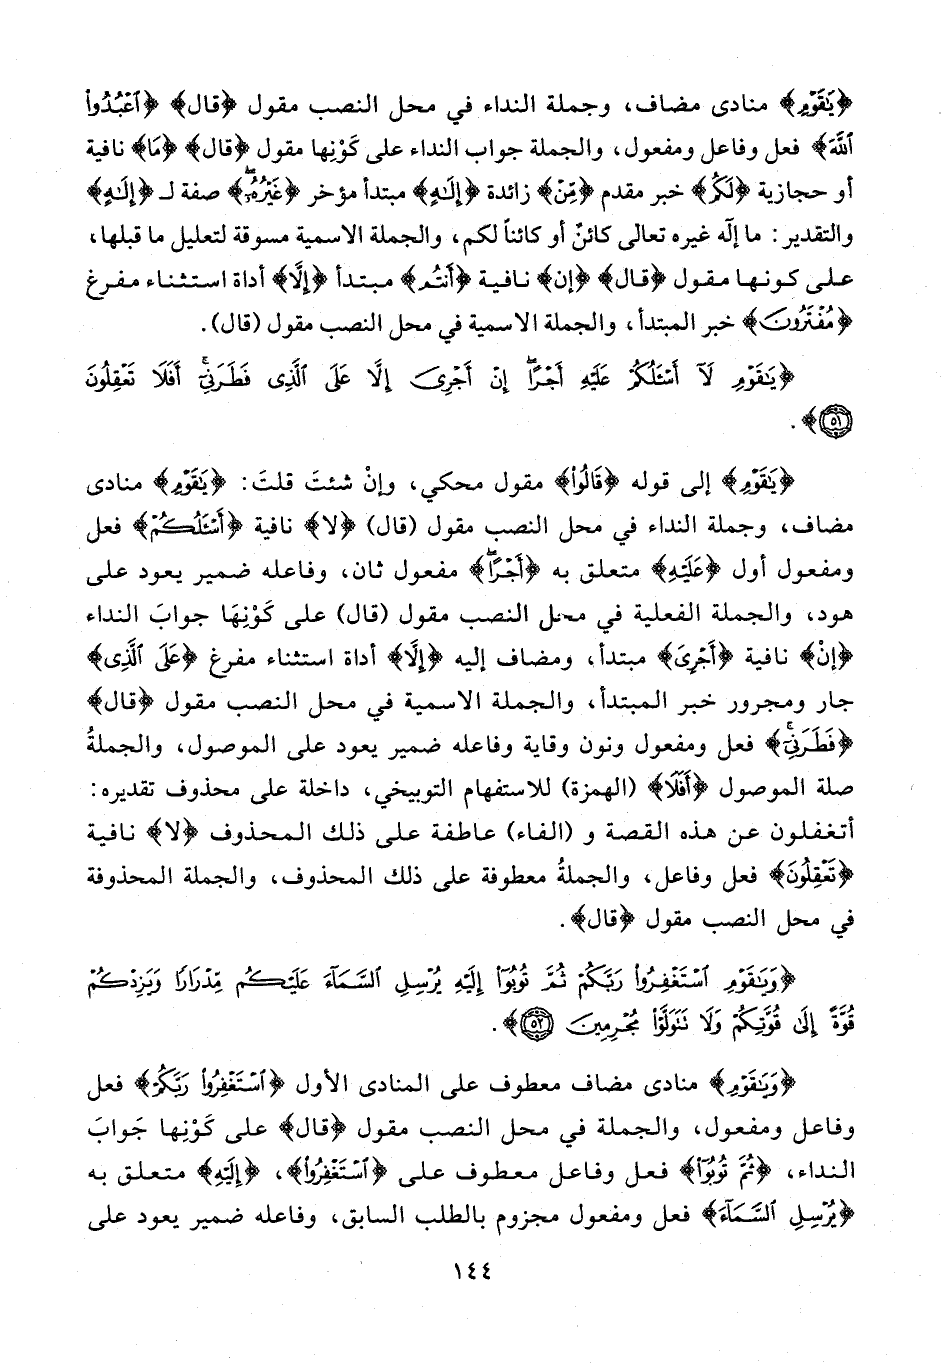 ﴿يَٰقَوْمِ﴾ منادى مضاف، وجملة النداء في محل النصب مقول ﴿قال﴾ ﴿ٱعْبُدُوا۟
ٱللَّهَ﴾ فعل وفاعل ومفعول، والجملة جواب النداء على كَوْنِها مقول ﴿قال﴾ ﴿مَا﴾ نافية
أو حجازية ﴿لَكُم﴾ خبر مقدم ﴿مِّنْ﴾ زائدة ﴿إِلَٰهٍ﴾ مبتدأ مؤخر ﴿غَيْرُهُۥٓ﴾ صفة لـ ﴿إِلَٰهٍ﴾
والتقدير: ما إلَه غيره تعالى كائنٌ أو كائناً لكم، والجملة الاسمية مسوقة لتعليل ما قبلها،
على كونها مقول ﴿قال﴾ ﴿إن﴾ نافية ﴿أَنتُمْ﴾ مبتدأ ﴿إِلَّا﴾ أداة استثناء مفرغ
﴿مُفْتَرُونَ﴾ خبر المبتدأ، والجملة الاسمية في محل النصب مقول (قال).
﴿يَٰقَوْمِ لَآ أَسْـَٔلُكُمْ عَلَيْهِ أَجْرًا ۖ إِنْ أَجْرِىَ إِلَّا عَلَى ٱلَّذِى فَطَرَنِىٓ ۚ أَفَلَا تَعْقِلُونَ
٥١﴾.
﴿يَٰقَوْمِ﴾ إلى قوله ﴿قَالُوا۟﴾ مقول محكي، وإنْ شئتَ قلتَ: ﴿يَٰقَوْمِ﴾ منادى
مضاف، وجملة النداء في محل النصب مقول (قال) ﴿لا﴾ نافية ﴿أَسْـَٔلُكُمْ﴾ فعل
ومفعول أول ﴿عَلَيْهِ﴾ متعلق به ﴿أَجْرًا ۖ﴾ مفعول ثان، وفاعله ضمير يعود على
هود، والجملة الفعلية في محل النصب مقول (قال) على كَوْنِهَا جوابَ النداء
﴿إنْ﴾ نافية ﴿أَجْرِىَ﴾ مبتدأ، ومضاف إليه ﴿إِلَّا﴾ أداة استثناء مفرغ ﴿عَلَى ٱلَّذِى﴾
جار ومجرور خبر المبتدأ، والجملة الاسمية في محل النصب مقول ﴿قال﴾
﴿فَطَرَنِىٓ ۚ﴾ فعل ومفعول ونون وقاية وفاعله ضمير يعود على الموصول، والجملةُ
صلة الموصول ﴿أَفَلَا﴾ (الهمزة) للاستفهام التوبيخي، داخلة على محذوف تقديره:
أتغفلون عن هذه القصة و (الفاء) عاطفة على ذلك المحذوف ﴿لا﴾ نافية
﴿تَعْقِلُونَ﴾ فعل وفاعل، والجملةُ معطوفة على ذلك المحذوف، والجملة المحذوفة
في محل النصب مقول ﴿قال﴾.
﴿وَيَٰقَوْمِ ٱسْتَغْفِرُوا۟ رَبَّكُمْ ثُمَّ تُوبُوٓا۟ إِلَيْهِ يُرْسِلِ ٱلسَّمَآءَ عَلَيْكُم مِّدْرَارًا وَيَزِدْكُمْ
قُوَّةً إِلَىٰ قُوَّتِكُمْ وَلَا تَتَوَلَّوْا۟ مُجْرِمِينَ ٥٢﴾.
﴿وَيَٰقَوْمِ﴾ منادى مضاف معطوف على المنادى الأول ﴿ٱسْتَغْفِرُوا۟ رَبَّكُمْ﴾ فعل
وفاعل ومفعول، والجملة في محل النصب مقول ﴿قال﴾ على كَوْنِها جَوابَ
النداء، ﴿ثُمَّ تُوبُوٓا۟﴾ فعل وفاعل معطوف على ﴿ٱسْتَغْفِرُوا۟﴾، ﴿إِلَيْهِ﴾ متعلق به
﴿يُرْسِلِ ٱلسَّمَآءَ﴾ فعل ومفعول مجزوم بالطلب السابق، وفاعله ضمير يعود على
١٤٤